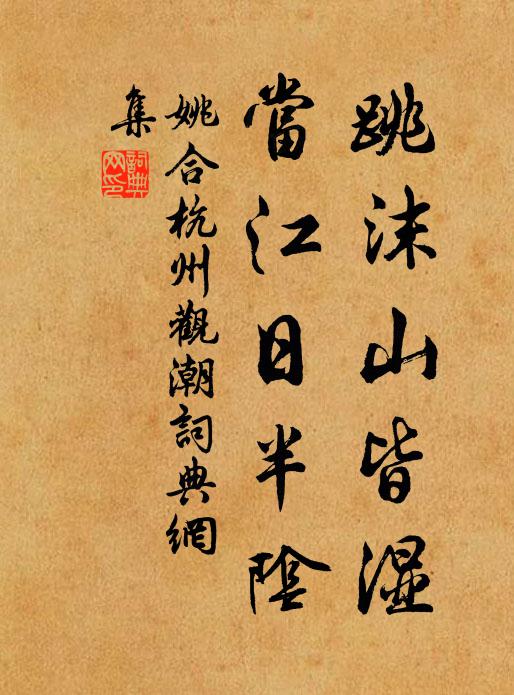 跳沫山皆湿
當江日半陰
姚合杭州觀潮詞典網
集
詞典
网印